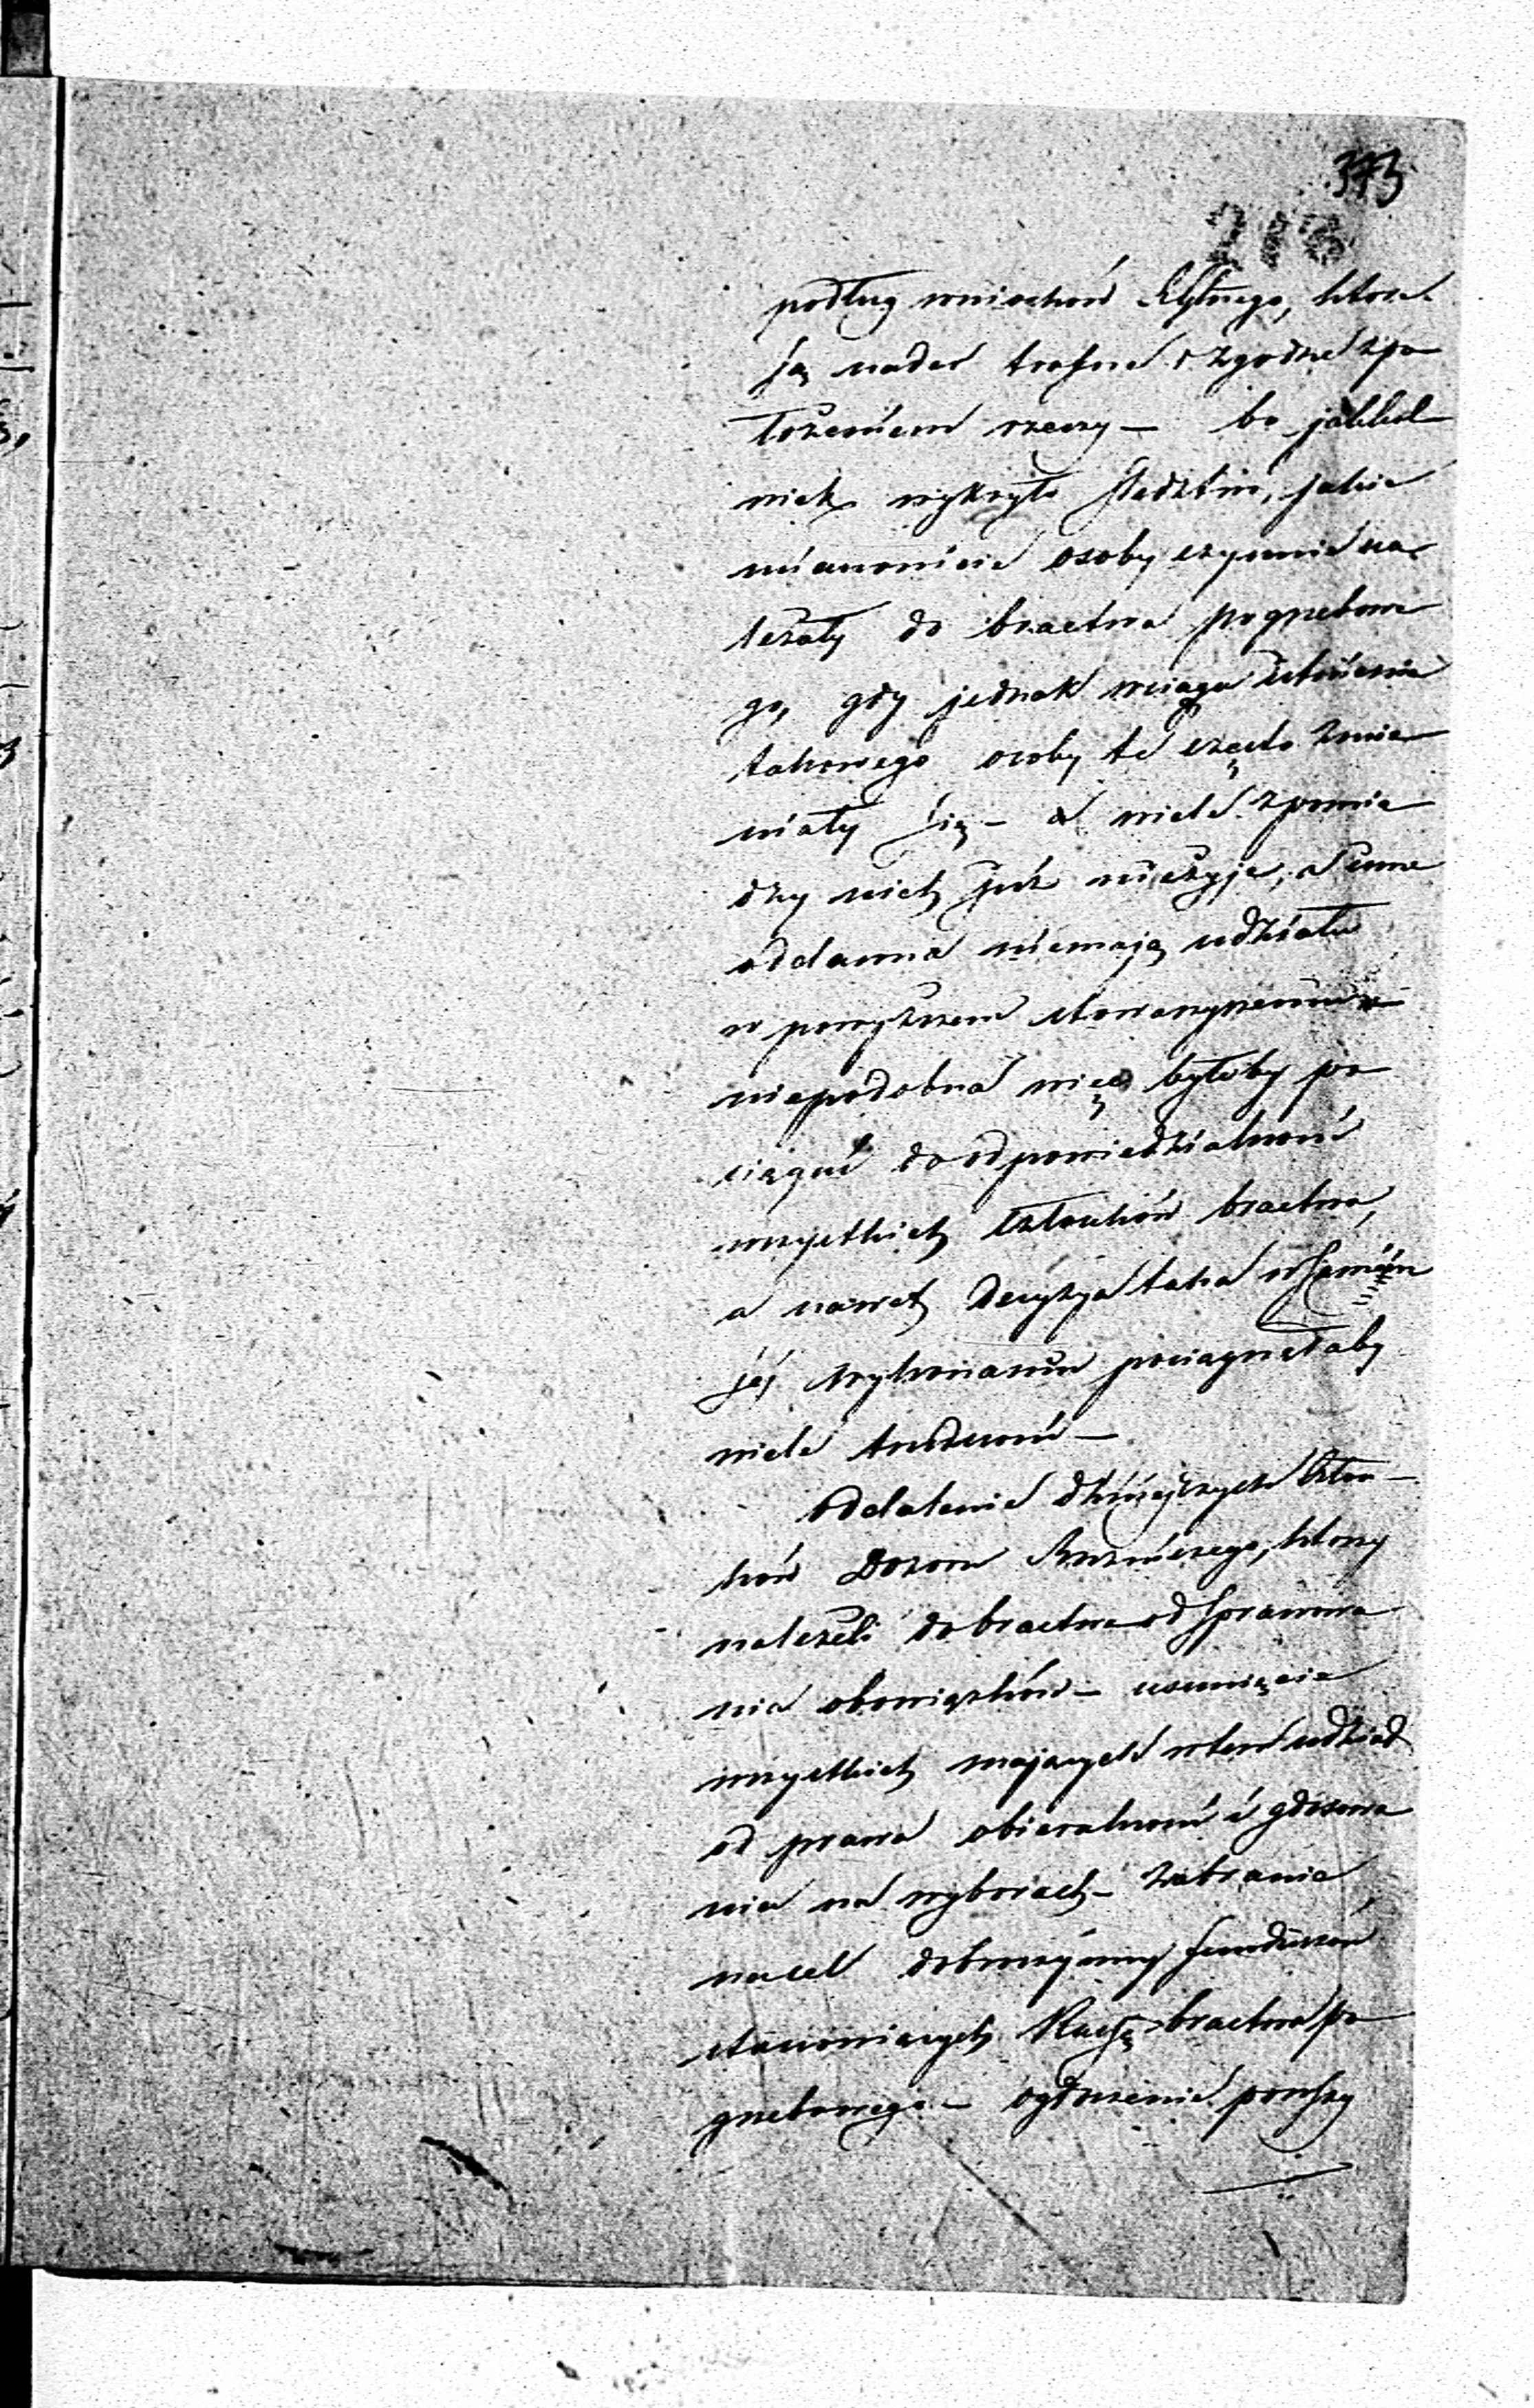 373
podług wniosków, które
są nader trafne i zgodne z po
łożeniem rzeczy — bo jakkol
wiek wykryło śledztwo, jakie
mianowicie osoby czynnie na
leżały do bractwa pogrzebowe
go, gdy jednak wciągu istnienia
takowego osoby te często zmie
niały się — a wiele z pomię
dzy nich już nieżyje, a inne
oddawna niemają udziału
w powyższem stowarzyszeniu
niepodobna więc byłoby po
ciągnąć do odpowiedzialności
wszystkich członków bractwa,
a nawet decyzja taka w samém
jéj wykonaniu pociągnęłaby
wiele trudności —
Oddalenie dzisiejszych Człon —
ków Dozoru Bużniczego, którzy
należeli do bractwa od sprawowa
nia obowiązków — usunięcie
wszystkich mających w tem udział
od prawa obieralności i głosowa
nia na wyborach — zabranie
na cel dobroczynny funduszów
stanowiących Kassę bractwa po
grzebowego — ogłoszenie powszy